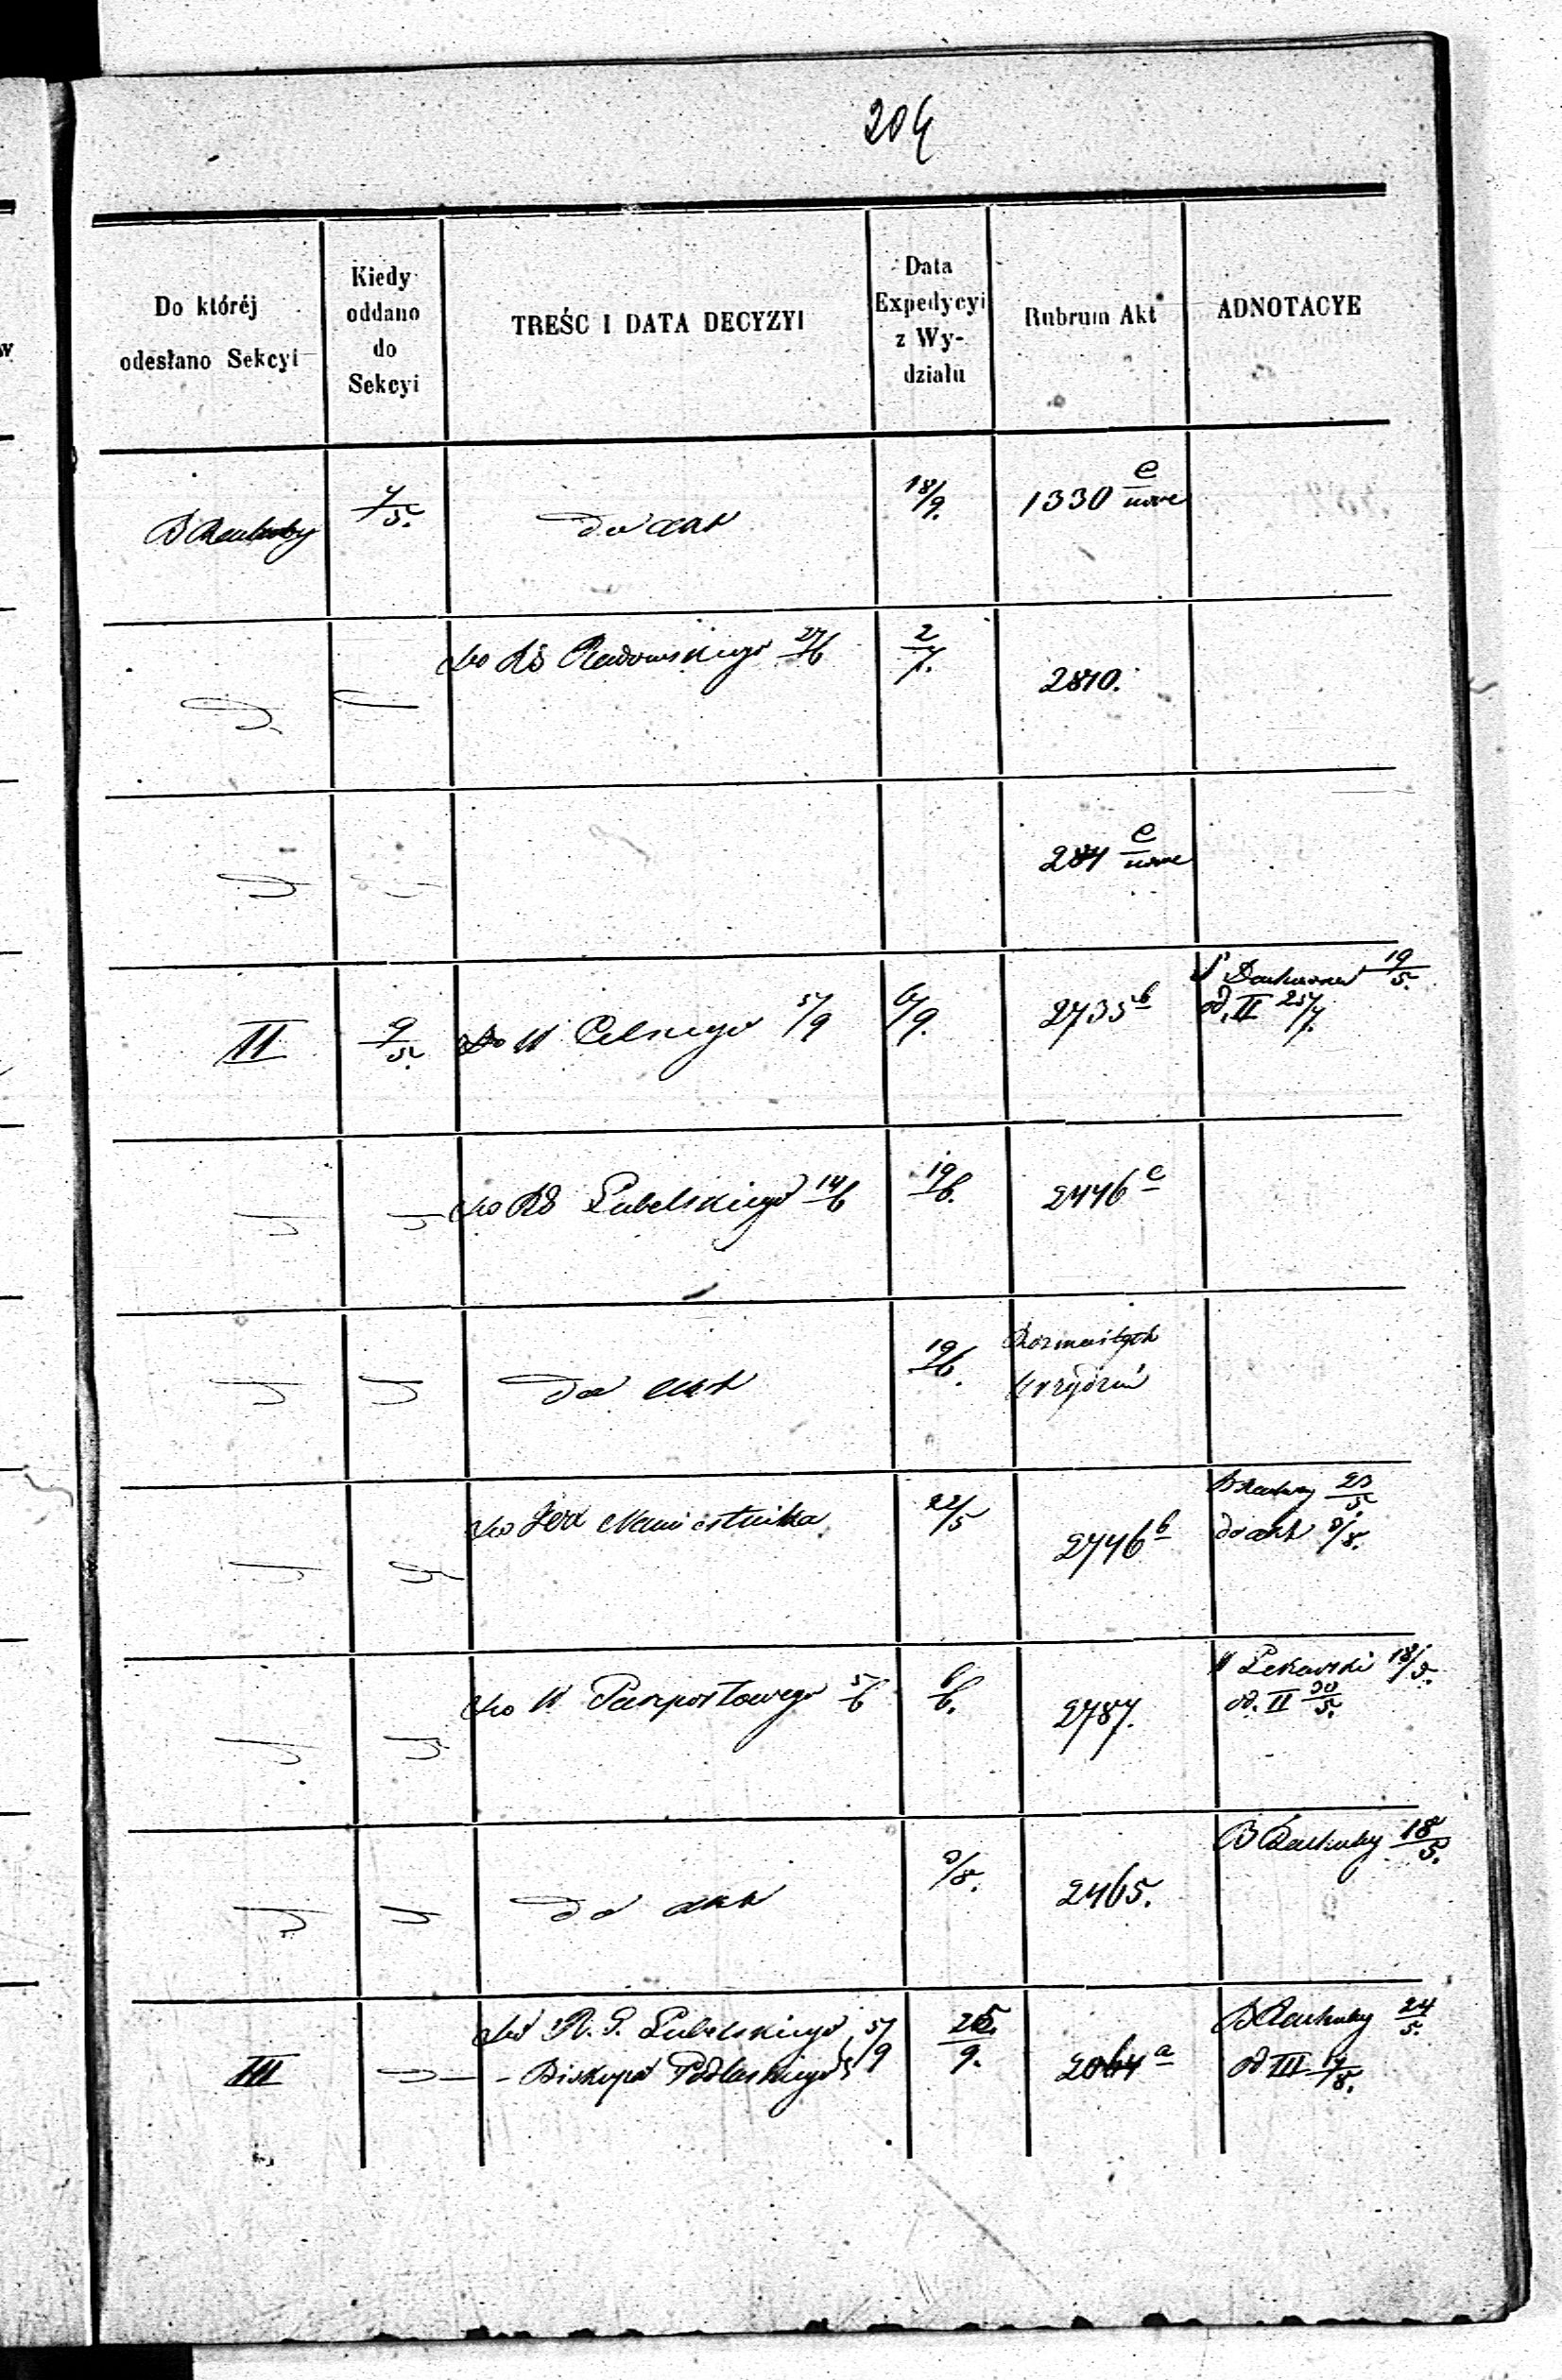 204
Do któréj
odesłano Sekcyi
Kiedy
oddano
do
Sekcyi
TREŚC I DATA DECYZYI
Data
Expedycyi
z Wy-
działu
Rubrum Akt
ADNOTACYE
B Rachuby 7/5. do akt 18/9. 1330 e/nowe
Do RG Radomskiego 27/6 2/7. 2810.
e/nowe
II 9/5. Do W Celnego 5/9 6/9. 2735 b 19/5.
od. II 25/7.
Do RG Lubelskiego 14/6 19/6. 2446 c
do akt 19/6. Rozmaitych
Urządzeń
Do Jera Namiestnika 22/5 2746 b B Rachuby 23/5
do akt 3/8.
Do W Paszportowego 5/6 6/6. 2787. 18/5.
od. II 30/5.
do akt 3/8. 2465. B Rachuby 18/5.
III Do R. G. Lubelskiego 5/9 9. 2064 a B Rachuby 24/5.
- Biskupa Podlaskiego od III 17/8.